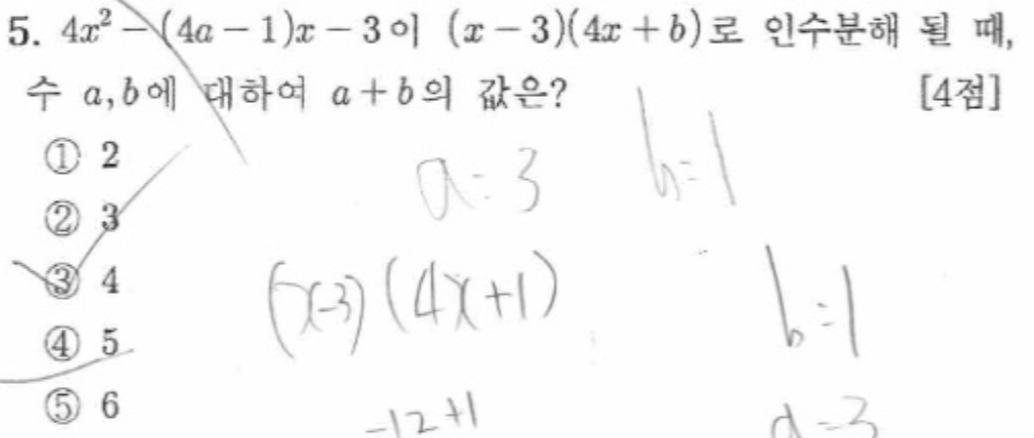 5. 4x² - (4a - 1)x - 3이 (x - 3)(4x + b)로 인수분해 될 때,
수 a, b에 대하여 a + b의 값은? [4점]
① 2
② 3
③ 4
④ 5
⑤ 6
a=3 b=1
(x-3)(4x+1)
b=1
-12+1
a=3